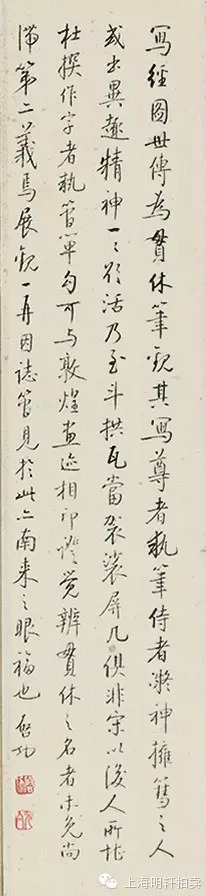 写經圖世傳為貫休筆觀其写尊者執筆侍者凝神擁篲之人
或出異趣精神一一欲活乃至斗拱瓦當袈裟屏几俱非宋以後人所能
杜撰作字者執管單勾可与敦煌画迹相印證觉辨貫休之名者未免尚
滞第二義焉展觀一再因誌管見於此亦南来之眼福也啟功
上海明轩拍卖